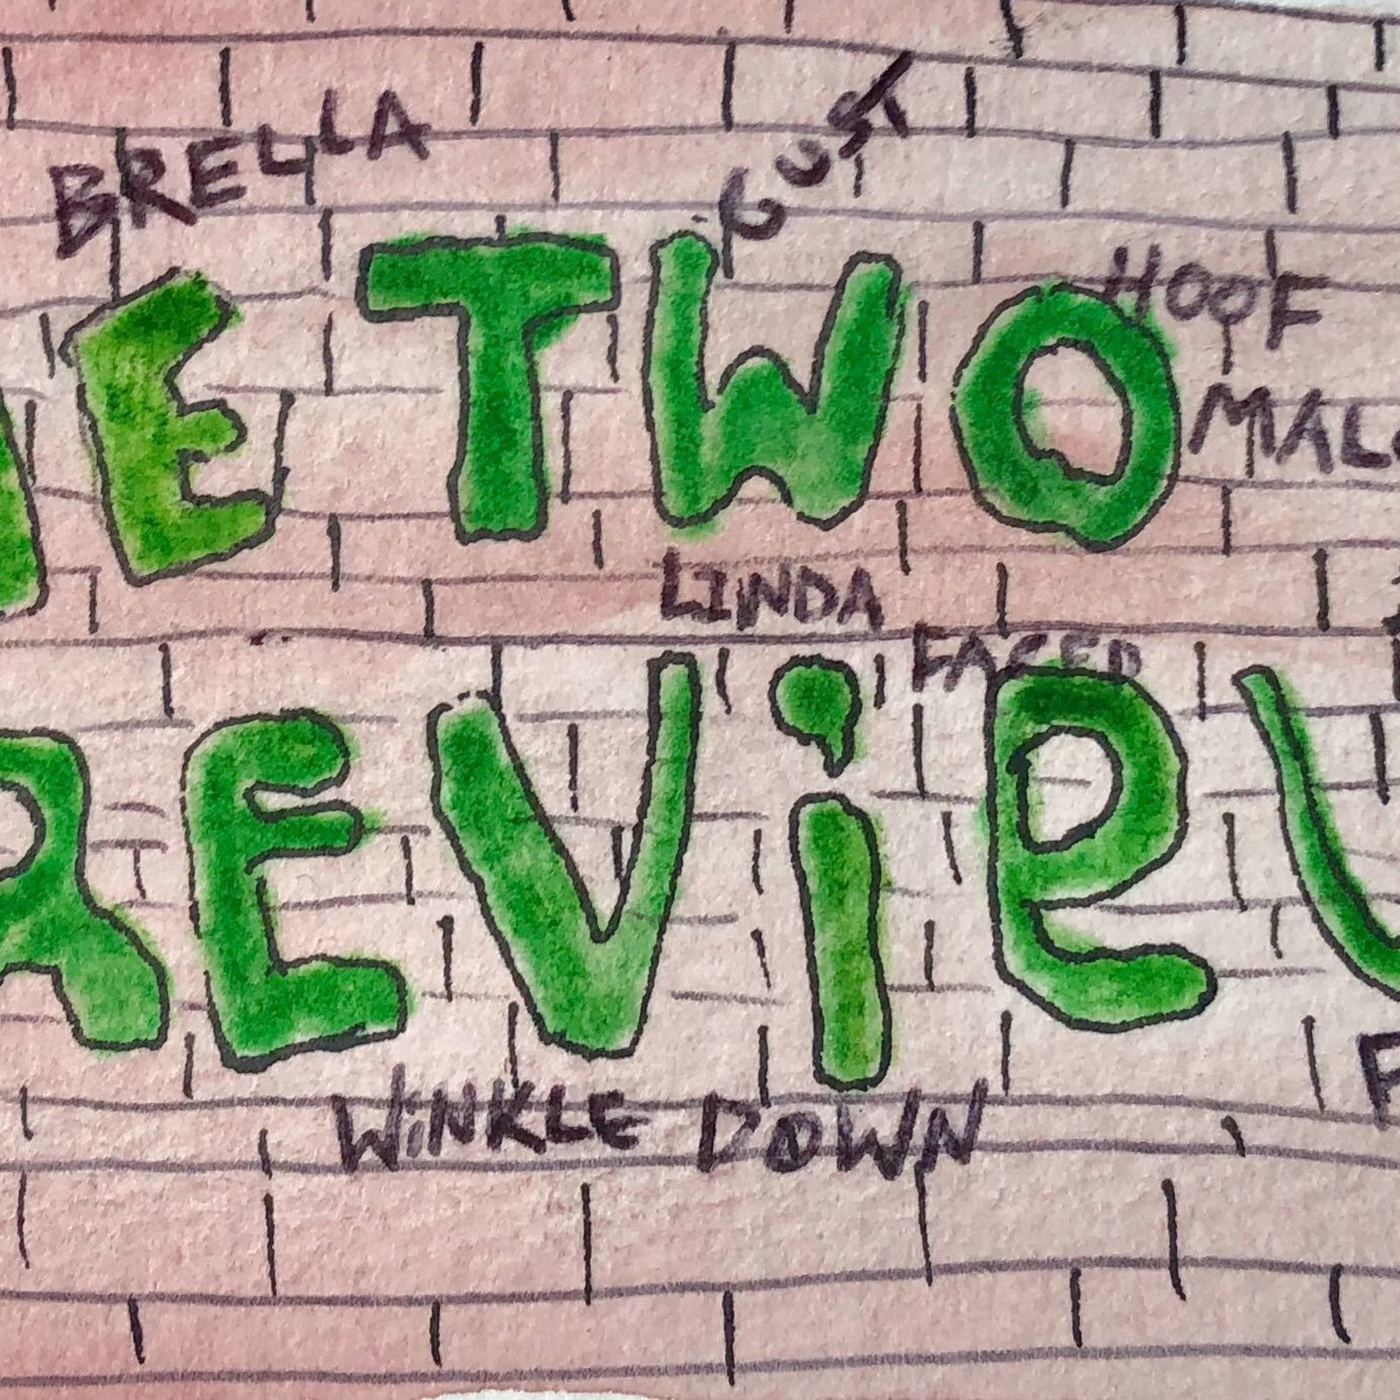 BRELLA
GUST
E TWO
HOOF
MAL
LINDA
FACED
REVIEW
WINKLE DOWN